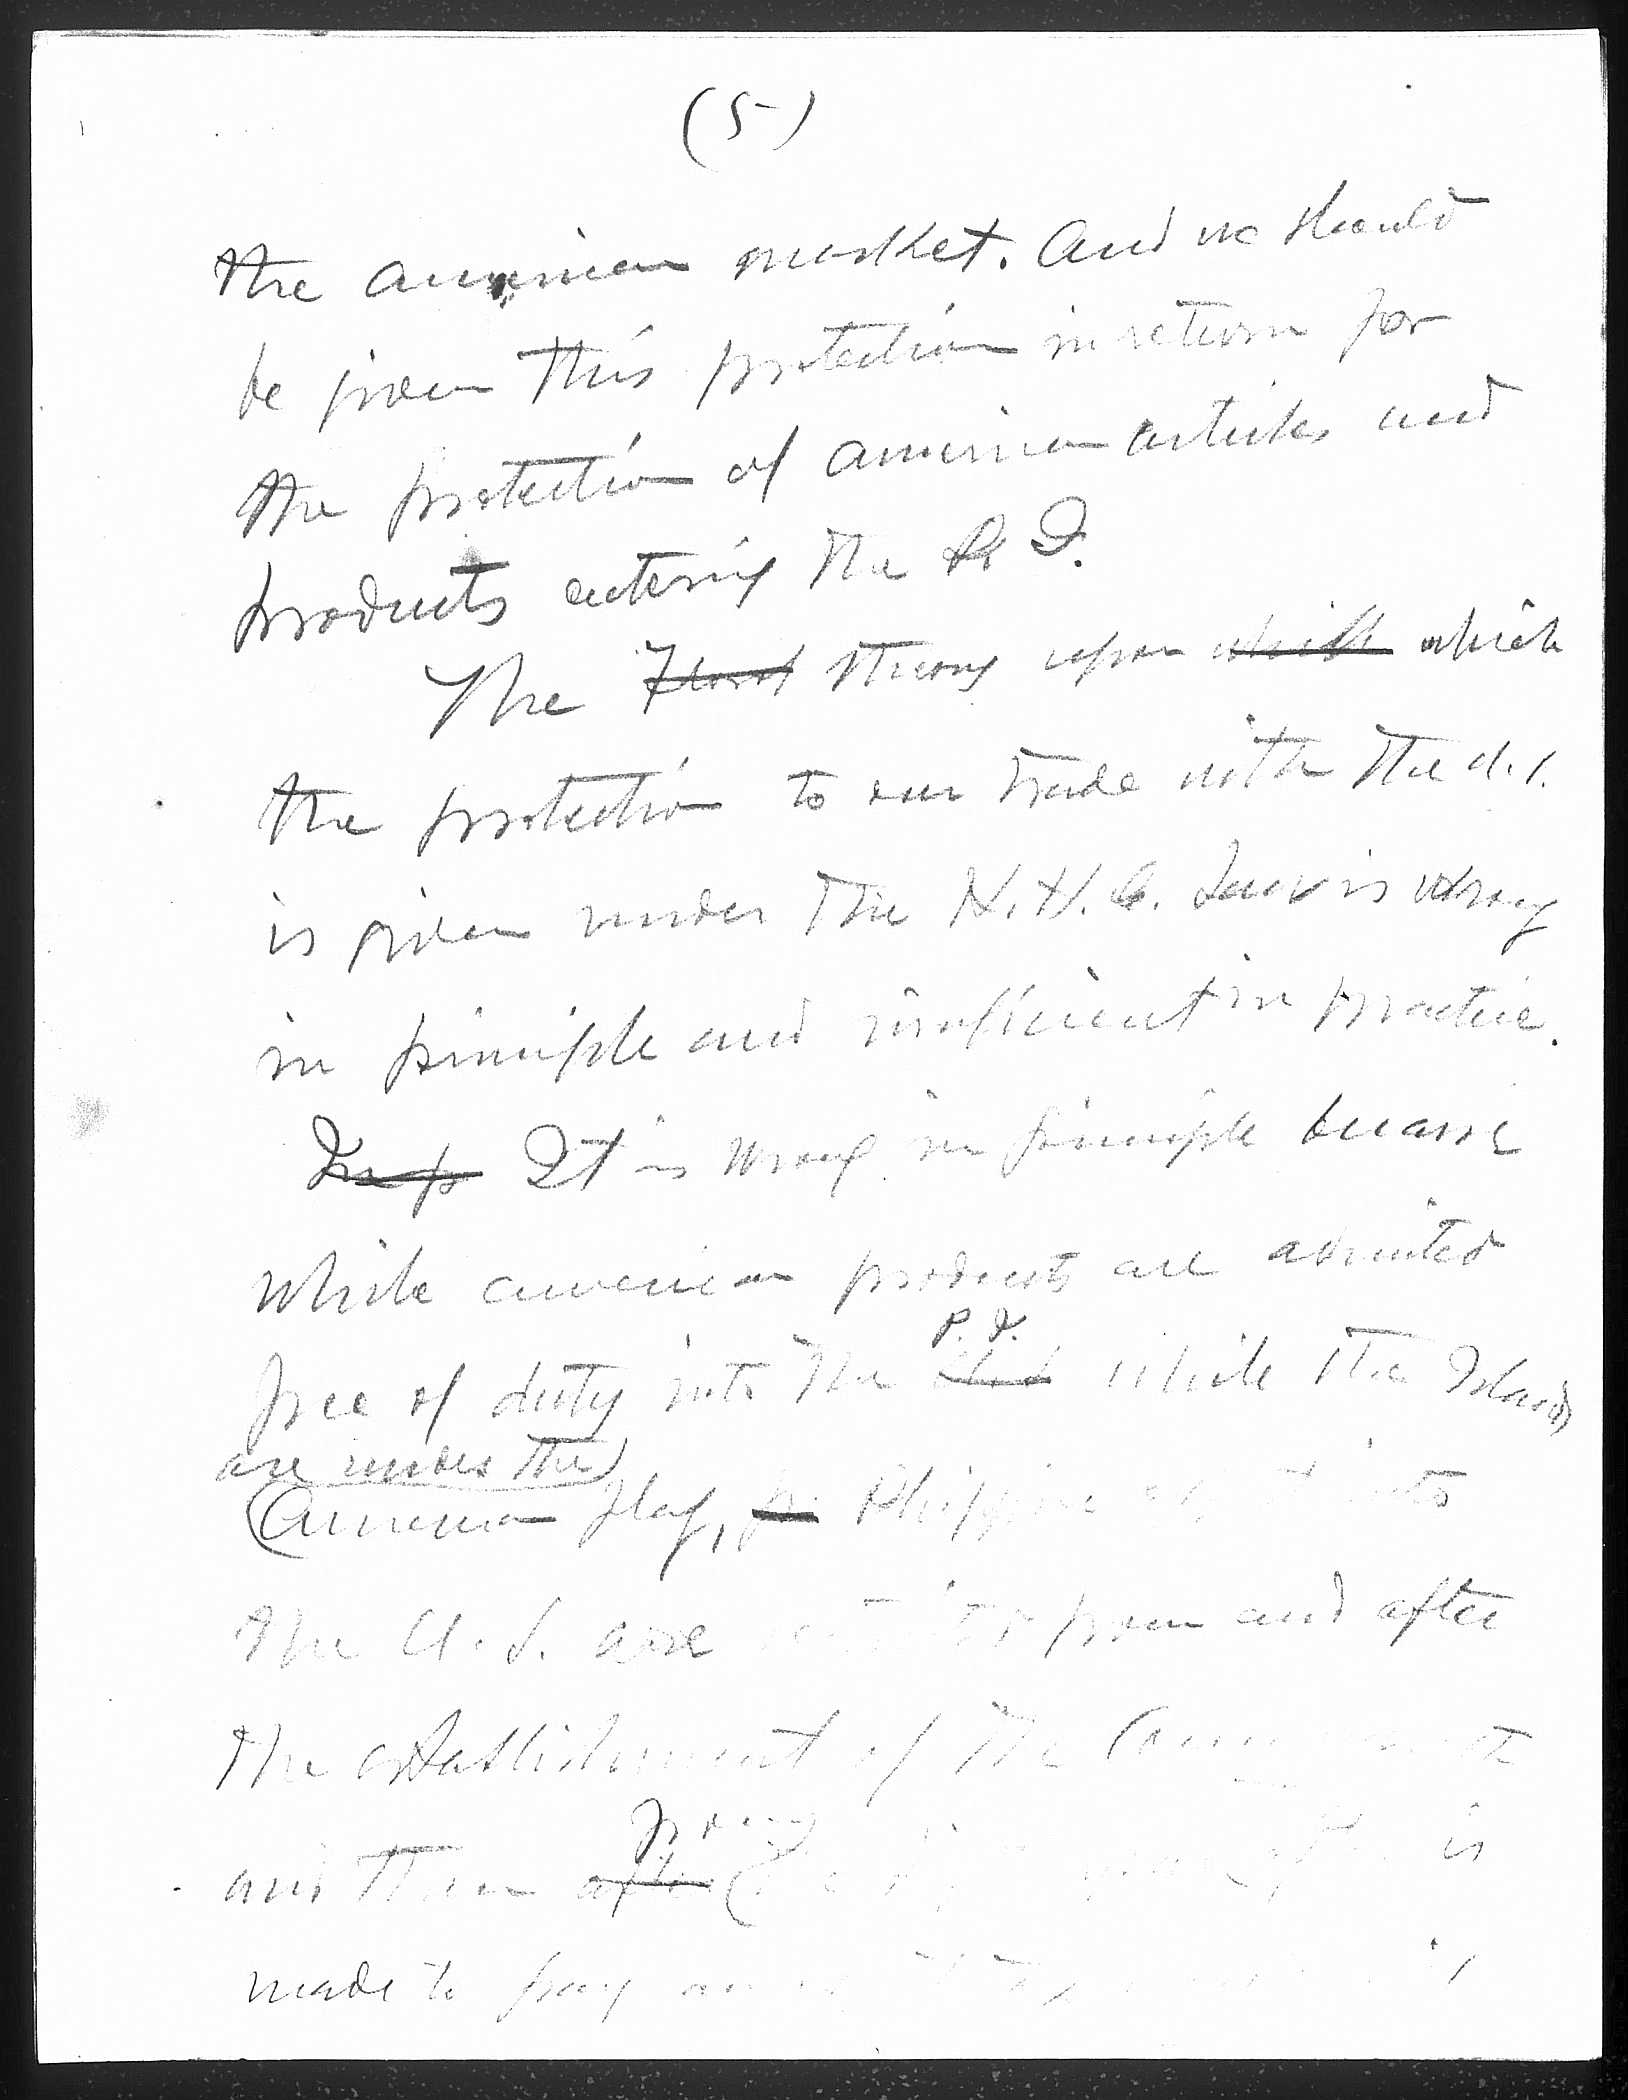 (5)
the American market. And we should
be given this protection in return for
the protection of American articles and
products entering the P. I.
The theory upon which which
the protection to our trade with the U.S.
is given under the H.H.C. Law is wrong
in principle and insufficient in practice.
In p It is wrong in principle because
while American products are admited
P. I.
free of duty into the while the Islands
are under the
American flag, Philippine
the U.S. are from and after
the establishment of the
from
and then after is
made to pay